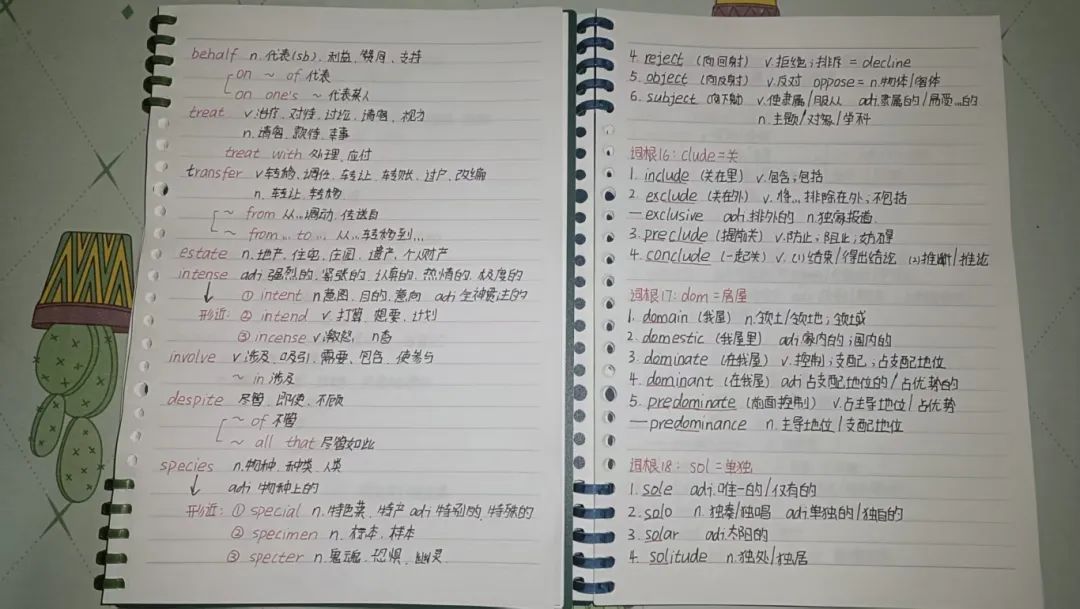 behalf n. 代表(sb)、利益、赞同、支持
on ~ of 代表
on one's ~ 代表某人
treat v.治疗、对待、讨论、请客、视为
n.请客、款待、幸事
treat with 处理、应付
transfer v.转移、调任、转让、转账、过户、改编
n. 转让、转移
~ from 从...调动、传送自
~ from... to ... 从...转移到...
estate n.地产、住宅、庄园、遗产、个人财产
intense adj 强烈的、紧张的、认真的、热情的、极度的
↓ ① intent n意图、目的、意向 adj 全神贯注的
形近: ② intend v. 打算、想要、计划
③ incense v.激怒, n香
involve v.涉及、吸引、需要、包含、使参与
~ in 涉及
despite 尽管、即使、不顾
~ of 不管
~ all that 尽管如此
species n.物种、种类、人类
↓ adj 物种上的
形近: ① special n. 特色菜、特产 adj 特别的、特殊的
② specimen n. 标本、样本
③ specter n. 鬼魂、恐惧、幽灵
4. reject (向回射) v.拒绝;排斥 = decline
5. object (向反射) v.反对 oppose = n.物体/客体
6. subject 向下射 v.使隶属/服从 adj.隶属的/易受...的
n.主题/对象/学科
词根16: clude=关
1. include (关在里) v.包含;包括
2. exclude (关在外) v. 将...排除在外;不包括
—exclusive adj.排外的 n.独家报道
3. preclude (提前关) v.防止;阻止;妨碍
4. conclude (一起关) v. (1)结束/得出结论 (2)推断/推论
词根17: dom=房屋
1. domain (我屋) n.领土/领地;领域
2. domestic (我屋里) adj.家内的;国内的
3. dominate (在我屋) v.控制;支配;占支配地位
4. dominant (在我屋) adj占支配地位的/占优势的
5. predominate (前面控制) v.占主导地位/占优势
—predominance n.主导地位/支配地位
词根18: sol=单独
1. sole adj.唯一的/仅有的
2. solo n. 独奏/独唱 adj.单独的/独自的
3. solar adj.太阳的
4. solitude n.独处/独居